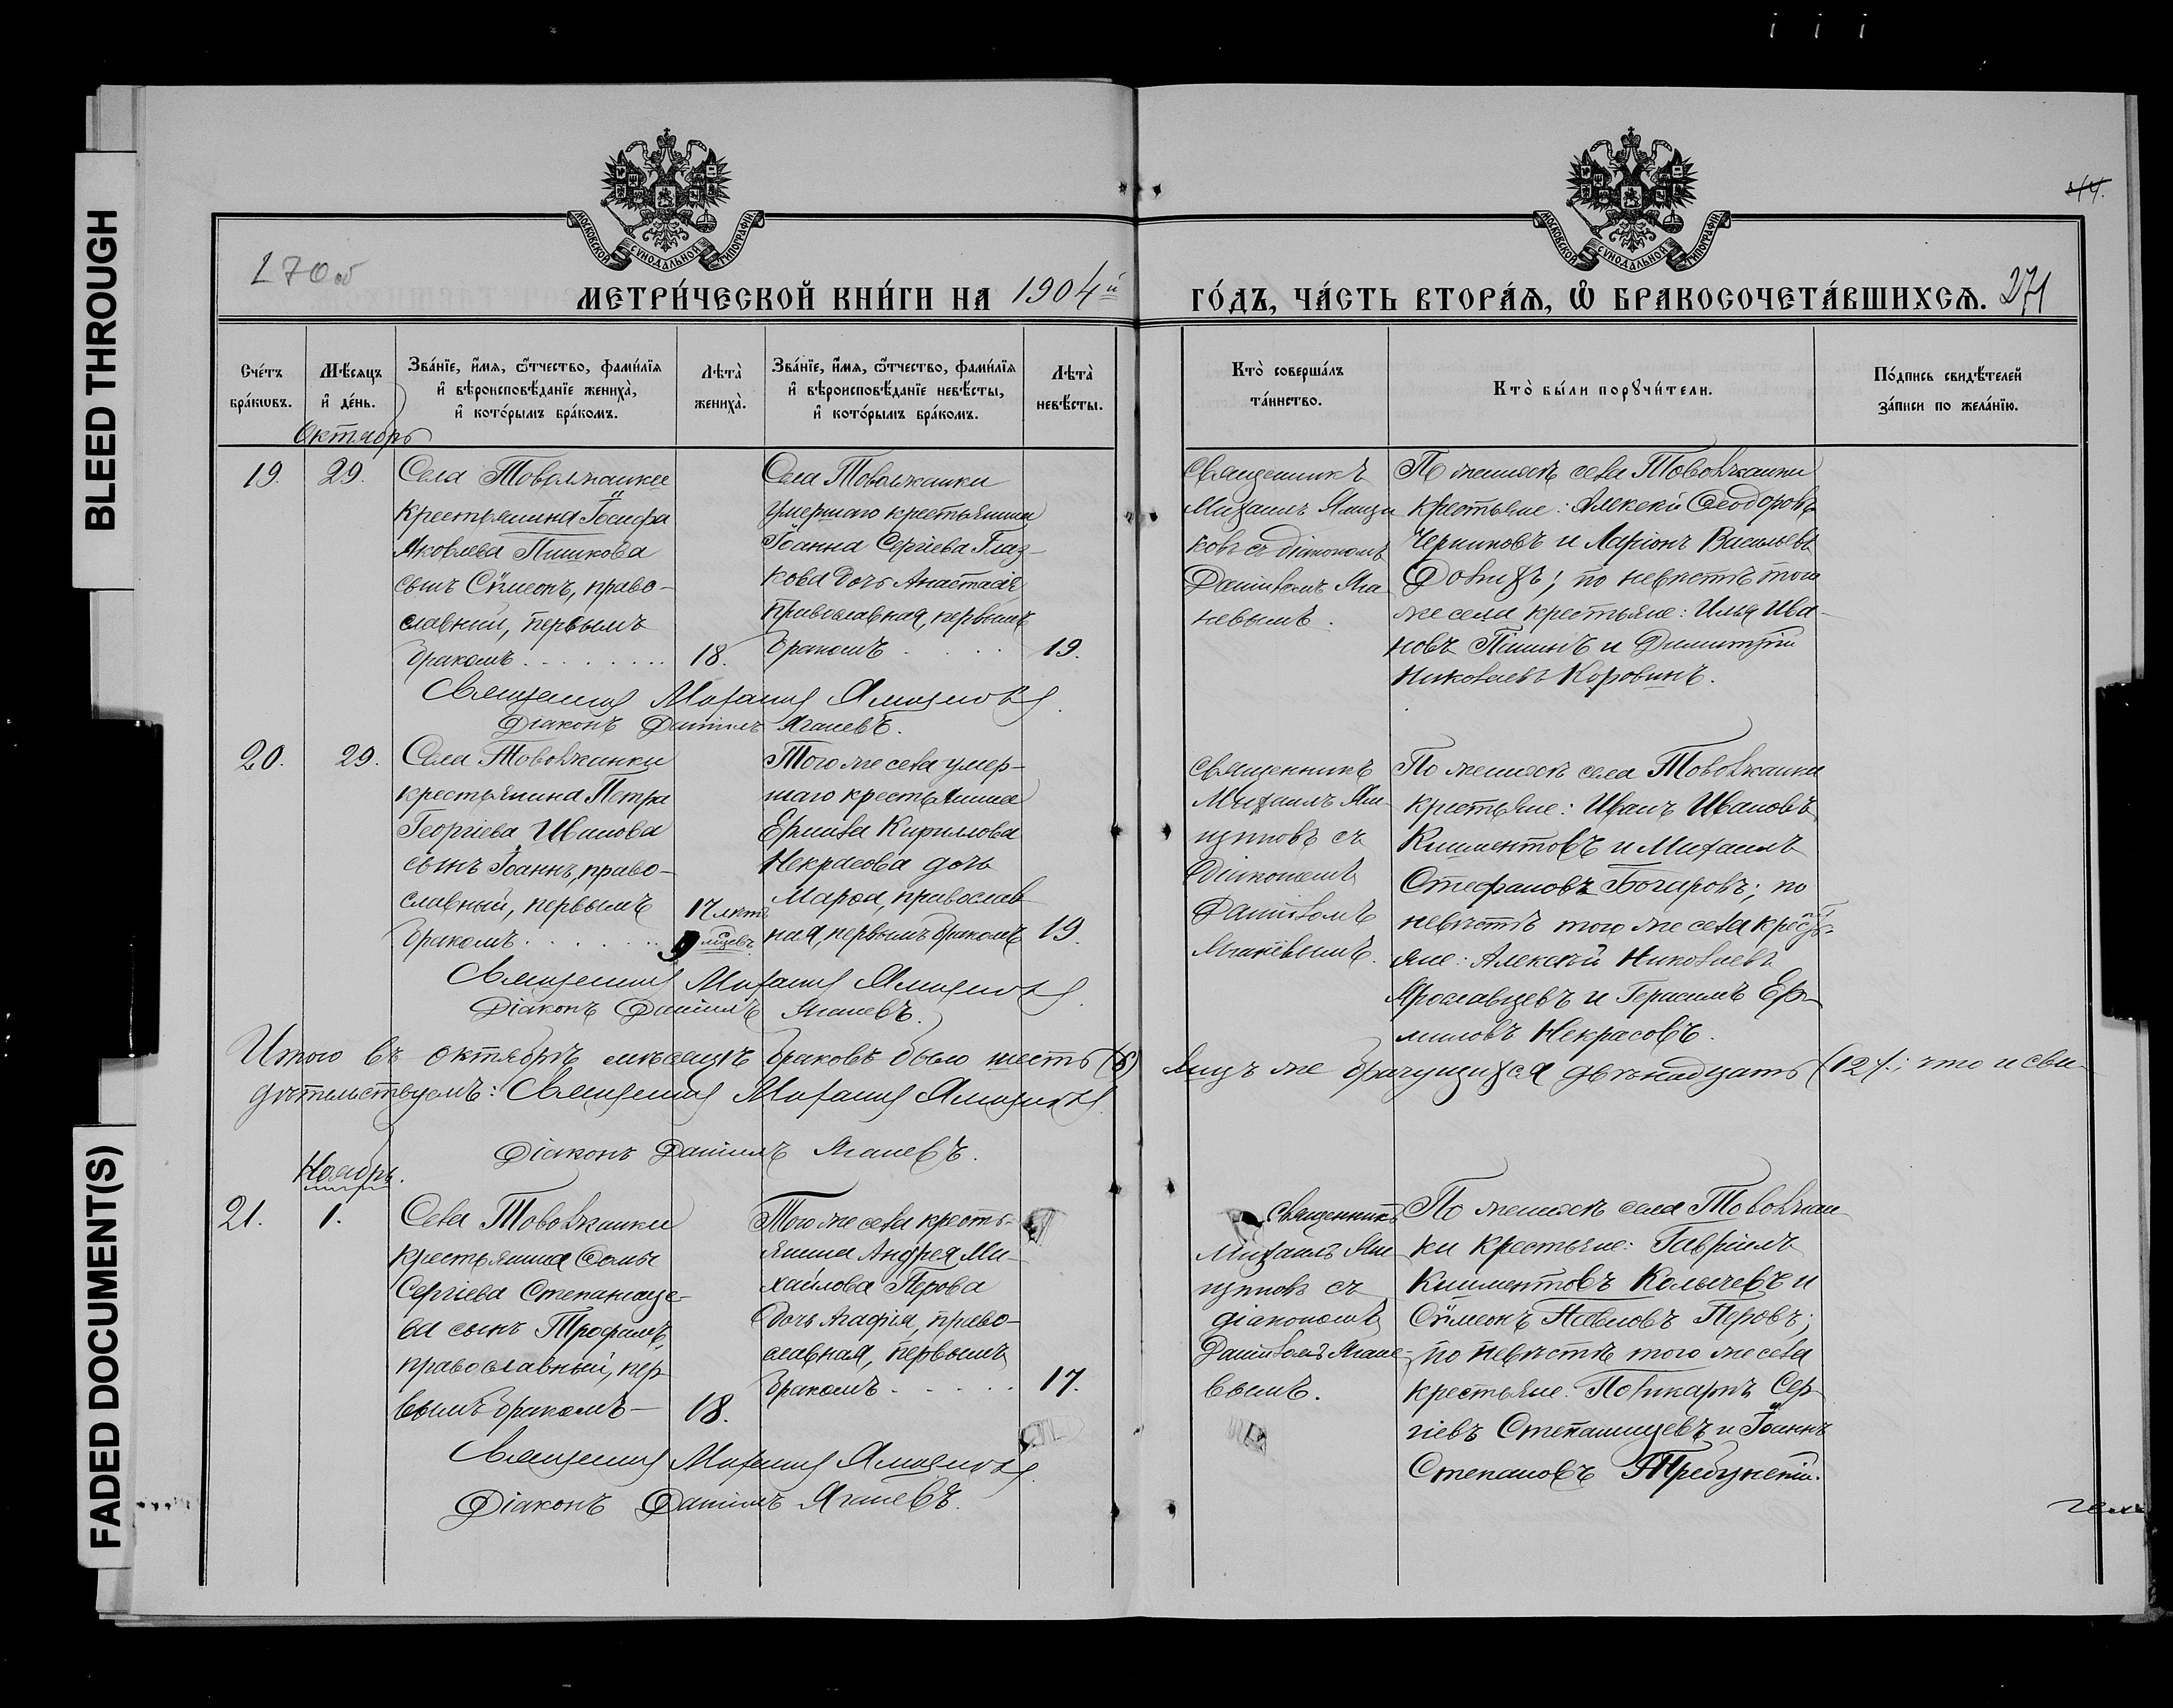 BLEED THROUGH
FADED DOCUMENT(S)
МОСКОВСКОЙ СУНОДАЛЬНОЙ ТИПОГРАФІИ
МОСКОВСКОЙ СУНОДАЛЬНОЙ ТИПОГРАФІИ
270 об
МЕТРИ́ЧЕСКОЙ КНИ́ГИ НА 1904й
ГО́ДЪ, ЧА́СТЬ ВТОРА́Я, Ѡ БРАКОСОЧЕТА́ВШИХСѦ. 271
Сче́тъ бра́кωвъ.
Мѣ́сяцъ и де́нь.
Зва́нїе, и́мя, ѻ́тчество, фами́лїя и вѣроисповѣ́данїе жениха̀, и кото́рымъ бра́комъ.
Лѣта̀ жениха̀.
Зва́нїе, и́мя, ѻ́тчество, фами́лїя и вѣроисповѣ́данїе невѣ́сты, и кото́рымъ бра́комъ.
Лѣта̀ невѣ́сты.
Кто̀ соверша́лъ та́инство.
Кто̀ бы́ли порꙋчи́тели.
По́дпись свидѣ́телей за́писи по жела́нїю.
Октябрь
19. 29.
Села Товолжанки
крестьянина Іосифа
Яковлева Пишкова
сынъ Сѵмеонъ, право-
славный, первымъ
бракомъ 18.
Села Товолжанки
умершаго крестьянина
Іоанна Сергіева Глаз-
кова дочь Анастасія,
православная, первымъ
бракомъ 19.
Священникъ
Михаилъ
ковъ съ діакономъ
Даніиломъ Яга-
невымъ.
По женихѣ села Товолжанки
крестьяне: Алексѣй Ѳеодоровъ
Черниковъ и Ларіонъ Васильевъ
по невѣстѣ того
же села крестьяне: Илья Ива-
новъ и Димитрій
Николаевъ Коровинъ.
Священникъ Михаилъ
Діаконъ Даніилъ Яганевъ.
20. 29.
Села Товолжанки
крестьянина Петра
Георгіева Иванова
сынъ Іоаннъ, право-
славный, первымъ
бракомъ 17 лѣтъ
9 мѣсяцевъ
Того же села умер-
шаго крестьянина
Ермила Кириллова
Некрасова дочь
Марѳа, православ
ная, первымъ бракомъ 19.
Священникъ
Михаилъ
съ
діакономъ
Даніиломъ
Яганевымъ.
По женихѣ села Товолжанки
крестьяне: Иванъ Ивановъ
Климентовъ и Михаилъ
Стефановъ Бочаровъ; по
невѣстѣ того же села кресть-
яне: Алексѣй Николаевъ
Ярославцевъ и Герасимъ Ер-
миловъ Некрасовъ.
Священникъ Михаилъ
Діаконъ Даніилъ Яганевъ.
Итого въ октябрѣ мѣсяцѣ браковъ было шесть (6) лицъ же брачущихся двѣнадцать (12); что и сви-
дѣтельствуемъ: Священникъ Михаилъ
Діаконъ Даніилъ Яганевъ.
Ноябрь.
21. 1.
Села Товолжанки
крестьянина Ѳомы
Сергіева Степанище-
ва сынъ Трофимъ,
православный, пер-
вымъ бракомъ 18.
Того же села кресть-
янина Андрея Ми-
хайлова Перова
дочь Агафія, право-
славная, первымъ
бракомъ 17.
Священникъ
Михаилъ
съ
діакономъ
Даніиломъ Ягане-
вымъ.
По женихѣ села Товолжан-
ки крестьяне: Гавріилъ
Климентовъ Колычевъ и
Сѵмеонъ Перовъ;
по невѣстѣ того же села
крестьяне: Поликарпъ Сер-
гіевъ Степанищевъ и Іоаннъ
Степановъ
Священникъ Михаилъ
Діаконъ Даніилъ Яганевъ.